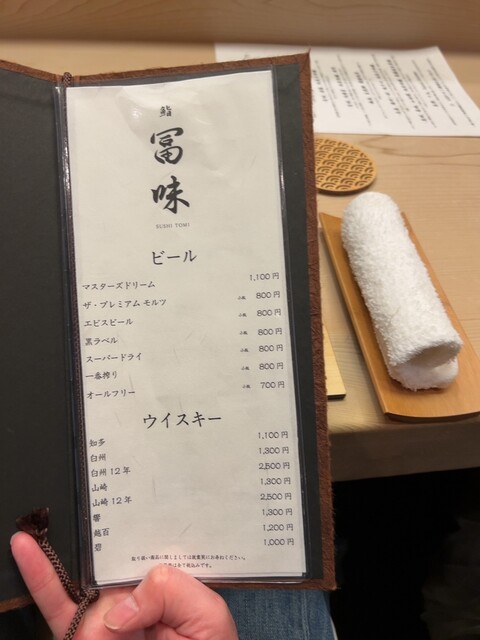 鮨
冨味
SUSHI TOMI
ビール
マスターズドリーム 1,100円
ザ・プレミアム モルツ 小瓶 800円
エビスビール 小瓶 800円
黒ラベル 小瓶 800円
スーパードライ 小瓶 800円
一番搾り 小瓶 800円
オールフリー 小瓶 700円
ウイスキー
知多 1,100円
白州 1,300円
白州 12年 2,500円
山崎 1,300円
山崎 12年 2,500円
響 1,300円
越百 1,200円
碧 1,000円
取り扱い商品に関しましては従業員にお尋ねください。
は全て税込みです。